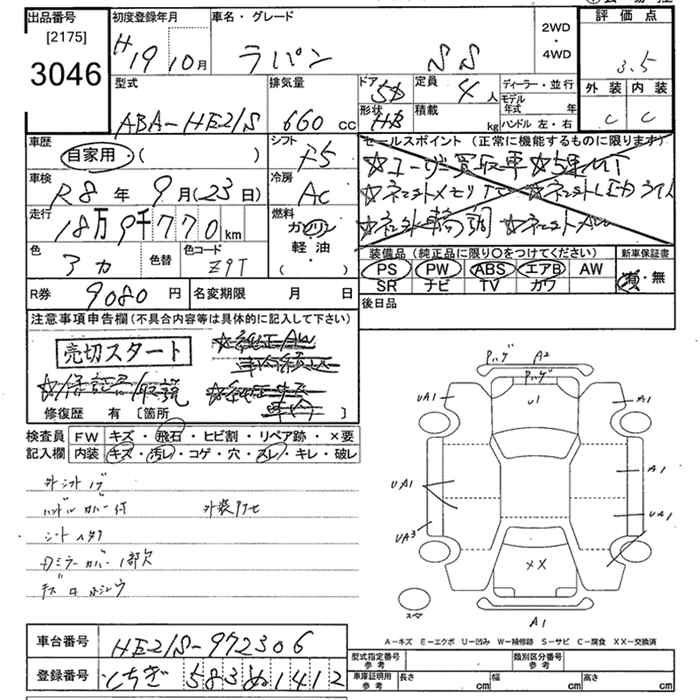 出品番号 初度登録年月 車名・グレード 2WD 評価点
[2175] ・ 4WD
3046 H19 10月 ラパン SS 3.5
型式 排気量 ドア 5D 定員 4人 ディーラー・並行 外装 内装
ABA-HE21S 660cc 形状 HB 積載 kg モデル年式 年 C C
ハンドル 左・右
車歴 シフト セールスポイント (正常に機能するものに限ります)
自家用・( ) F5 ☆ユーザー買取車 ☆5速MT
車検 冷房
R8年 9月(23日) AC
走行 燃料
18万9千770km ガソリン
軽油
・( )
色 色替 色コード 装備品 (純正品に限り○をつけてください) 新車保証書
アカ Z9T PS PW ABS エアB AW 有・無
SR ナビ TV カワ
R券 9080円 名変期限 月 日 後日品
注意事項申告欄 (不具合内容等は具体的に記入して下さい)
売切スタート
修復歴 有 [箇所 ]
検査員 FW キズ・飛石・ヒビ割・リペア跡・×要
記入欄 内装 キズ・汚レ・コゲ・穴・スレ・キレ・破レ
ハンドル カバー付 外装
シート
Rミラーカバー1部欠
A2
U1
UA1 A1
UA1 A1
UA1
UA3
XX
A1
A-キズ E-エクボ U-凹み W-補修跡 S-サビ C-腐食 XX-交換済
車台番号 HE21S-972306
登録番号 とちぎ 583 め 1412
型式指定番号 参考 類別区分番号 参考
車庫証明用 参考 長さ cm 幅 cm 高さ cm